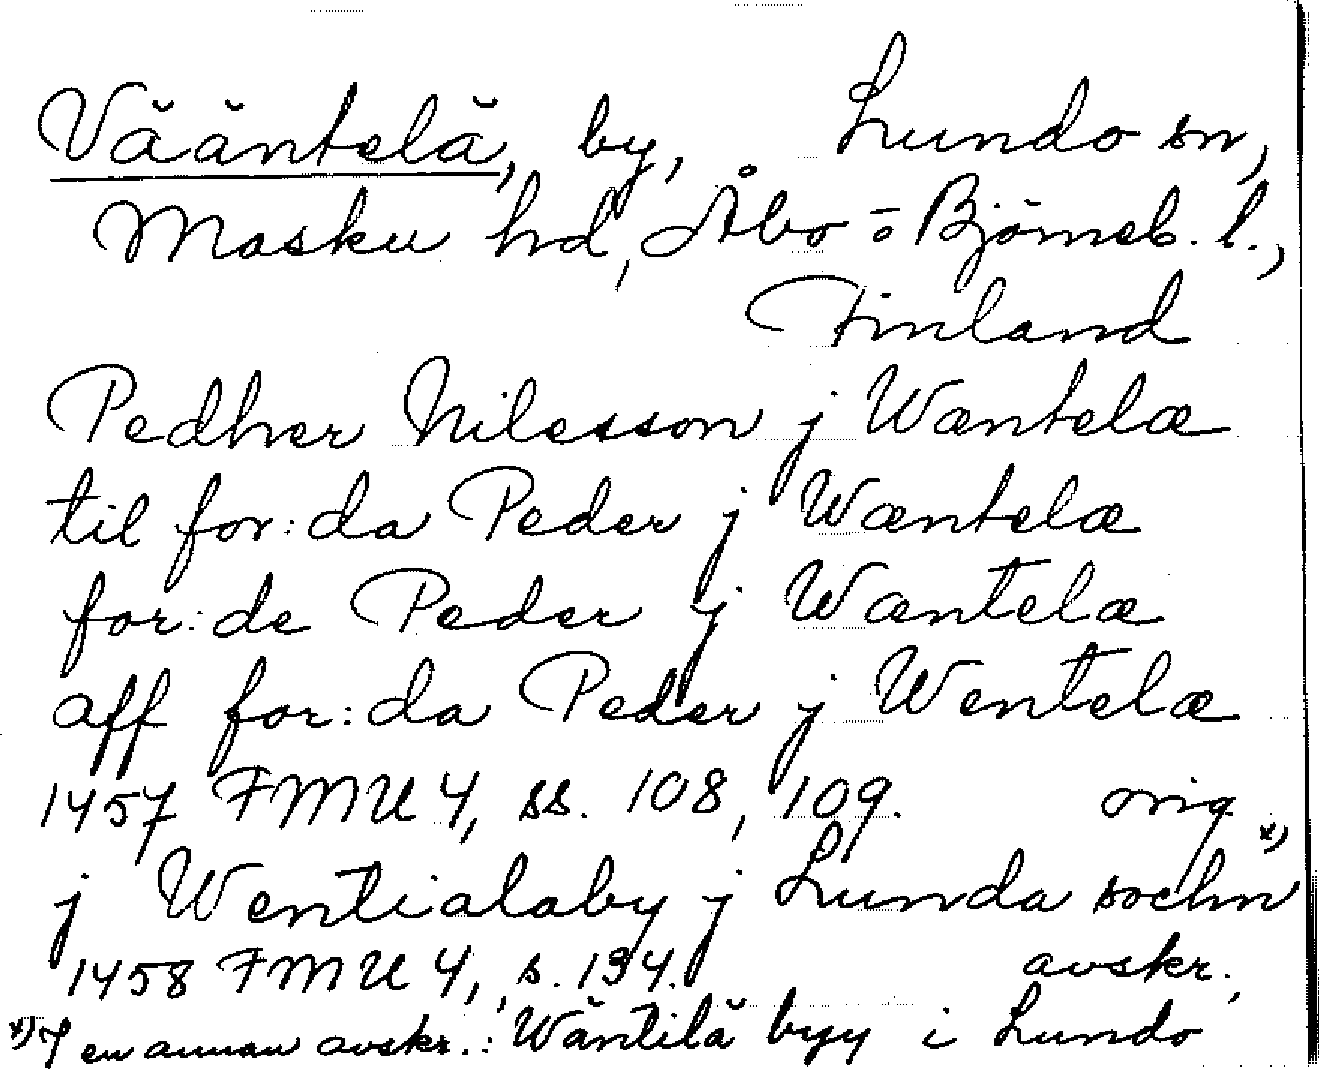 Vääntelä, by, Lundo sn,
Masku hd, Åbo o Björneb. l.,
Finland
Pedher Nilesson j Wæntelæ
til for:da Peder j Wæntelæ
for:de Peder j Wæntelæ
aff for:da Peder j Wentelæ
1457 FMU 4, ss. 108, 109. orig.
j Wentialaby j Lunda sochn x)
1458 FMU 4, s. 134. avskr.,
x) I en annan avskr.: Wäntilä byy i Lundo